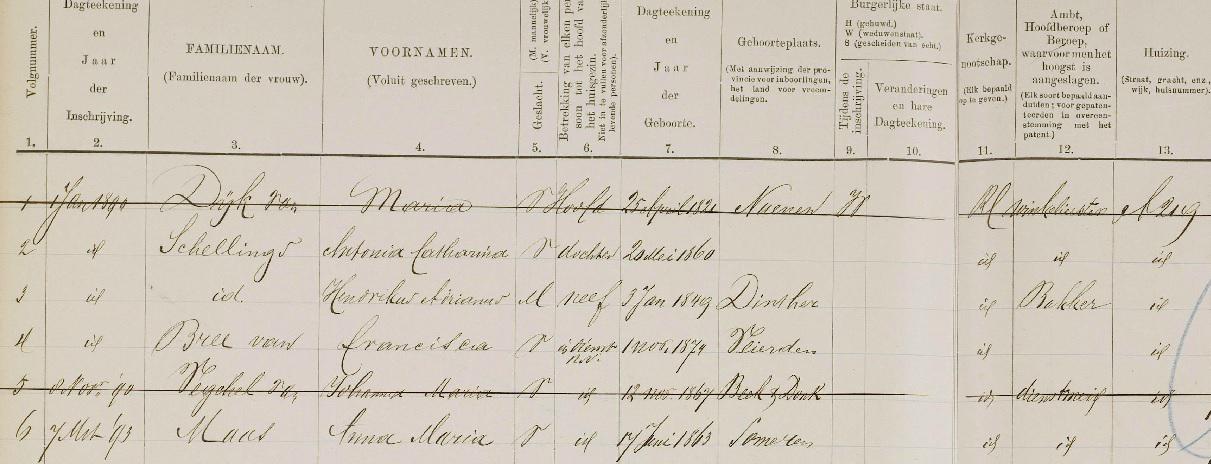 Volgnummer.
Dagteekening
en
Jaar
der
Inschrijving.
FAMILIENAAM.
(Familienaam der vrouw).
VOORNAMEN.
(Voluit geschreven.)
Geslacht. (M. mannelijk) (V. vrouwelijk)
Betrekking van elken per
soon tot het hoofd va
het huisgezin.
Dagteekening
en
Jaar
der
Geboorte.
Geboorteplaats.
(Met aanwijzing der pro-
vincie voor inboorlingen,
het land voor vreem-
delingen.
Burgerlijke staat.
H (gehuwd.)
W (weduwenstaat).
S (gescheiden van echt.)
Tijdens de
inschrijving.
Veranderingen
en hare
Dagteekening.
Kerkge-
nootschap.
(Elk bepaald
op te geven.)
Ambt,
Hoofdberoep of
Beroep,
waarvoor men het
hoogst is
aangeslagen.
(Elk soort bepaald aan-
duiden; voor gepaten-
teerden in overeen-
stemming met het
patent.)
Huizing.
(Straat, gracht, enz.,
wijk, huisnummer).
1. 2. 3. 4. 5. 6. 7. 8. 9. 10. 11. 12. 13.
1 1 Jan 1890 Dijk van Maria V Hoofd 25 April 1821 Nuenen W RC winkelierster A 219
2 id Schellings Antonia Catharina V dochter 20 Mei 1860 id id id
3 id id. Hendrikus Adrianus M neef 3 Jan 1849 Dinther id Bakker id
4 id Bree van Francisca V in dienst 1 nov. 1874 Vlierden id id
5 8 Nov. '90 Veghel van Johanna Maria V id 12 nov. 1867 Beek & Donk id dienstmeid id
6 7 Mrt '93 Maas Anna Maria V id 17 Juni 1863 Someren id id id